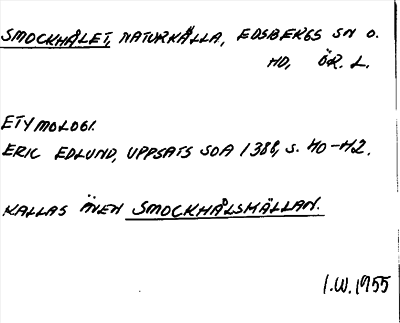 SMOCKHÅLET, NATURKÄLLA, EDSBERGS SN O.
HD, ÖR. L.
ETYMOLOGI.
ERIC EDLUND, UPPSATS SOA 1388, S. 40-42.
KALLAS ÄVEN SMOCKHÅLSKÄLLAN.
I.W. 1955